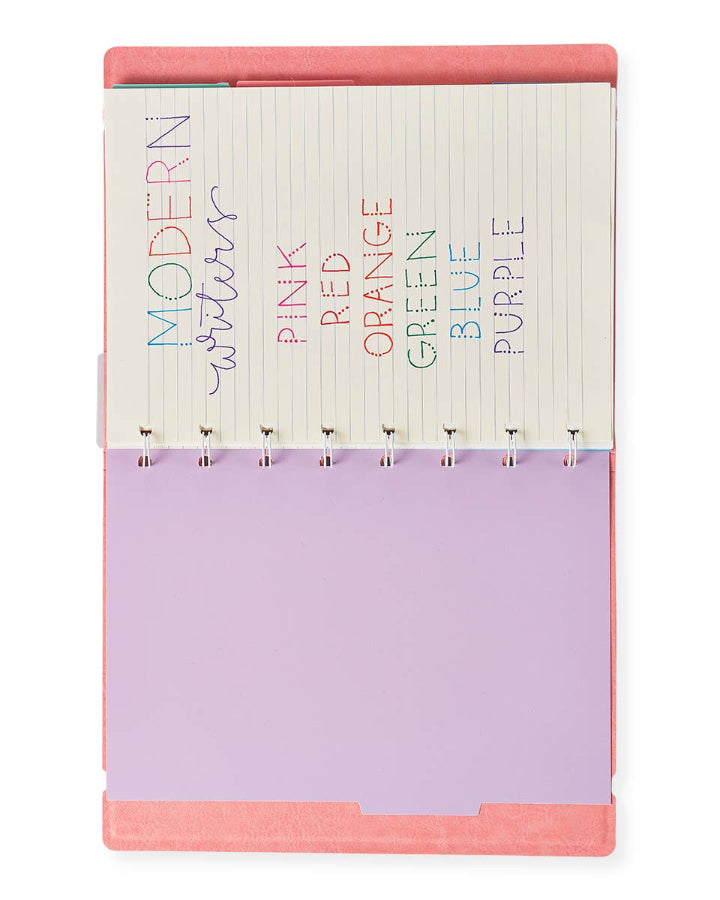 MODERN
writers
PINK
RED
ORANGE
GREEN
BLUE
PURPLE